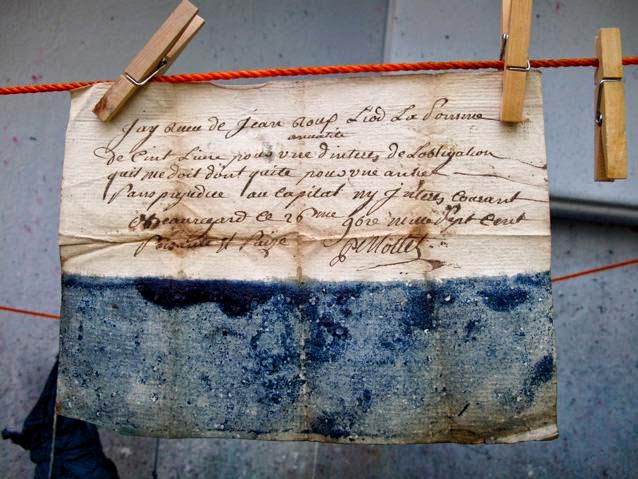 jay recu de Jean roux Liod La somme
annuitte
de Cent Livre pour vne d'interes de Lobligation
quil me doit dont quite pour vne antier
Sans prejudice au Capital ny jnteres courant
a beauregard ce 26 me 9bre mille sept cent
soixante et seize